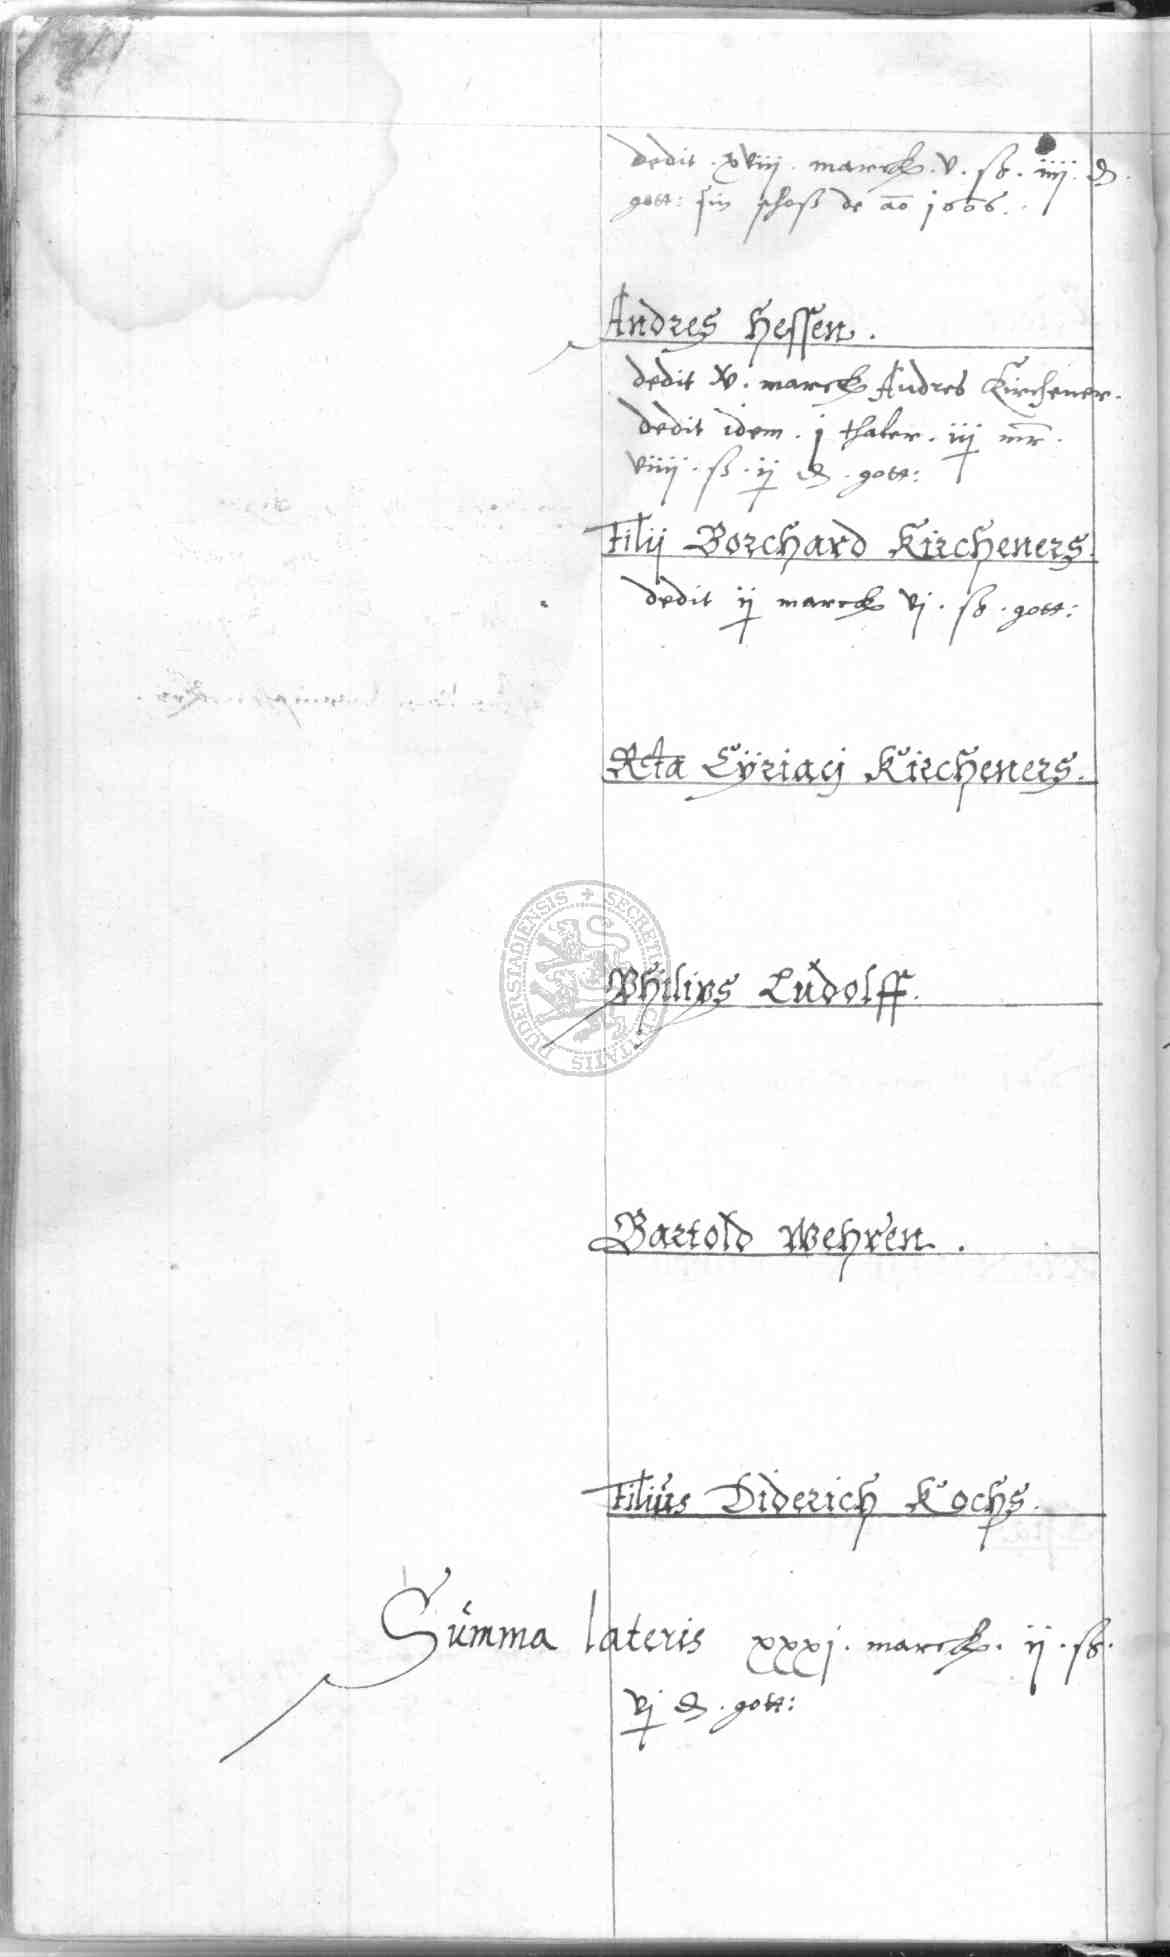 dedit . xviij . marck . v . ß . iiij . ₰ .
gott: sin schoß de ao 1606 .
Andres Hessen .
dedit xv . marck Andres Kirchener .
dedit idem . j thaler . iij mr .
viiij . ß . ij ₰ . gott:
Filij Borchard Kircheners .
dedit ij marck vj . ß . gott:
Rta Cÿriacj Kircheners .
Philips Ludolff .
DUDERSTADIENSIS ✢ SECRETU CIVITATIS
Bartold Wehren .
Filius Diderich Kochs .
Summa lateris xxxj . marck . ij . ß .
vj ₰ . gott: